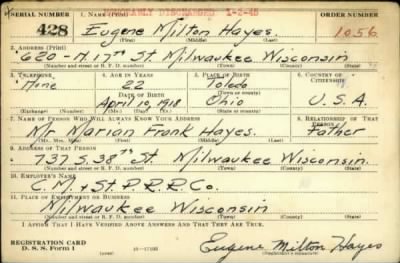 HONORABLY DISCHARGED 1-2-45
SERIAL NUMBER 1. NAME (Print) ORDER NUMBER
428 Eugene Milton Hayes. 1056
(First) (Middle) (Last)
2. ADDRESS (Print)
620 - N. 15th St Milwaukee Wisconsin
(Number and street or R. F. D. number) (Town) (County) (State)
3. TELEPHONE 4. AGE IN YEARS 5. PLACE OF BIRTH 6. COUNTRY OF CITIZENSHIP
None 22 Toledo
DATE OF BIRTH (Town or county)
April 10 1918 Ohio U.S.A.
(Exchange) (Number) (Mo.) (Day) (Yr.) (State or country)
7. NAME OF PERSON WHO WILL ALWAYS KNOW YOUR ADDRESS 8. RELATIONSHIP OF THAT PERSON
Mr Marian Frank Hayes. Father
(Mr., Mrs., Miss) (First) (Middle) (Last)
9. ADDRESS OF THAT PERSON
737 S. 38th St. Milwaukee Wisconsin.
(Number and street or R. F. D. number) (Town) (County) (State)
10. EMPLOYER'S NAME
C.M. & St. P.R.R. Co.
11. PLACE OF EMPLOYMENT OR BUSINESS
Milwaukee Wisconsin
(Number and street or R. F. D. number) (Town) (County) (State)
I AFFIRM THAT I HAVE VERIFIED ABOVE ANSWERS AND THAT THEY ARE TRUE.
REGISTRATION CARD
D. S. S. Form 1 Eugene Milton Hayes